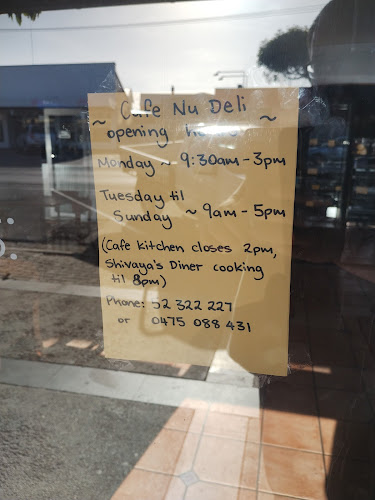 Cafe Nu Deli
~ opening ~
Monday ~ 9:30am - 3pm
Tuesday til
Sunday ~ 9am - 5pm
(Cafe kitchen closes 2pm,
Shivaya's Diner cooking
til 8pm)
Phone: 52 322 227
or 0475 088 431